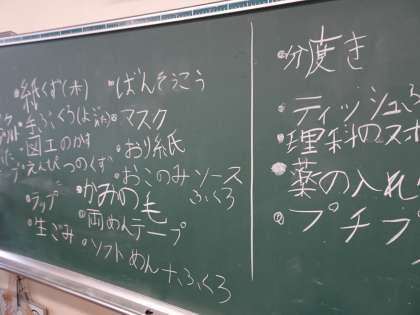 ・紙くず(木)
・ばんそこう
・手ぶくろ
・マスク
・図工のかす
・おり紙
えんぴつのくず
・おこのみソース
ふくろ
・ラップ
・かみの毛
・生ごみ
・両めんテープ
・ソフトめん+ふくろ
・分度き
・ティッシュ
・理科のスポ
・薬の入れ
・プチプ